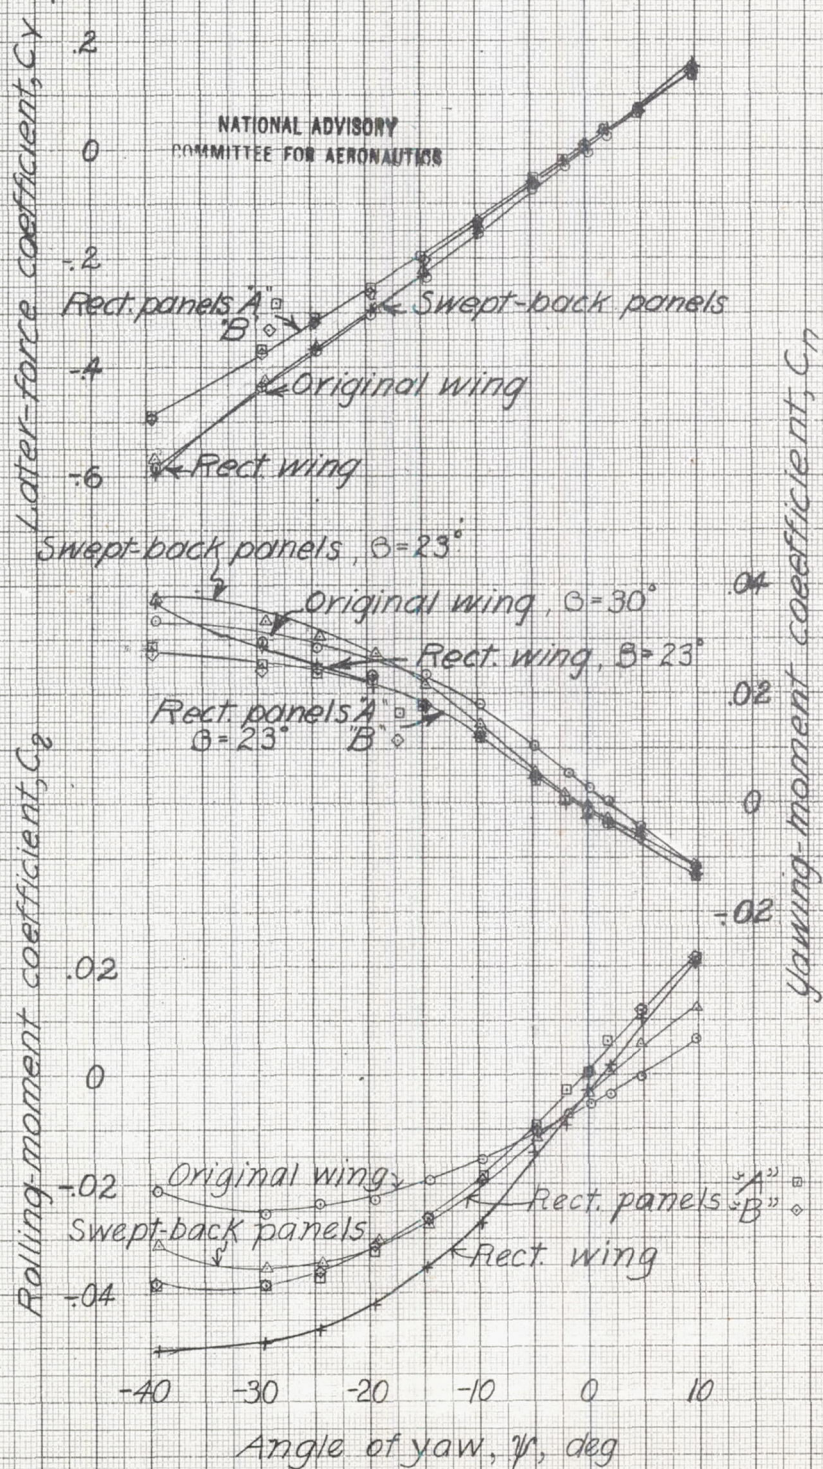 Later-force coefficient, CY
.2
0
-.2
-.4
-.6
NATIONAL ADVISORY
COMMITTEE FOR AERONAUTICS
Rect. panels "A"
"B"
Swept-back panels
Original wing
Rect. wing
Swept-back panels, β=23°
Original wing, β=30°
Rect. wing, β=23°
Rect. panels "A"
β=23° "B"
Yawing-moment coefficient, Cn
.04
.02
0
-.02
Rolling-moment coefficient, Cl
.02
0
-.02
-.04
Original wing
Swept-back panels
Rect. panels "A"
"B"
Rect. wing
-40 -30 -20 -10 0 10
Angle of yaw, ψ, deg